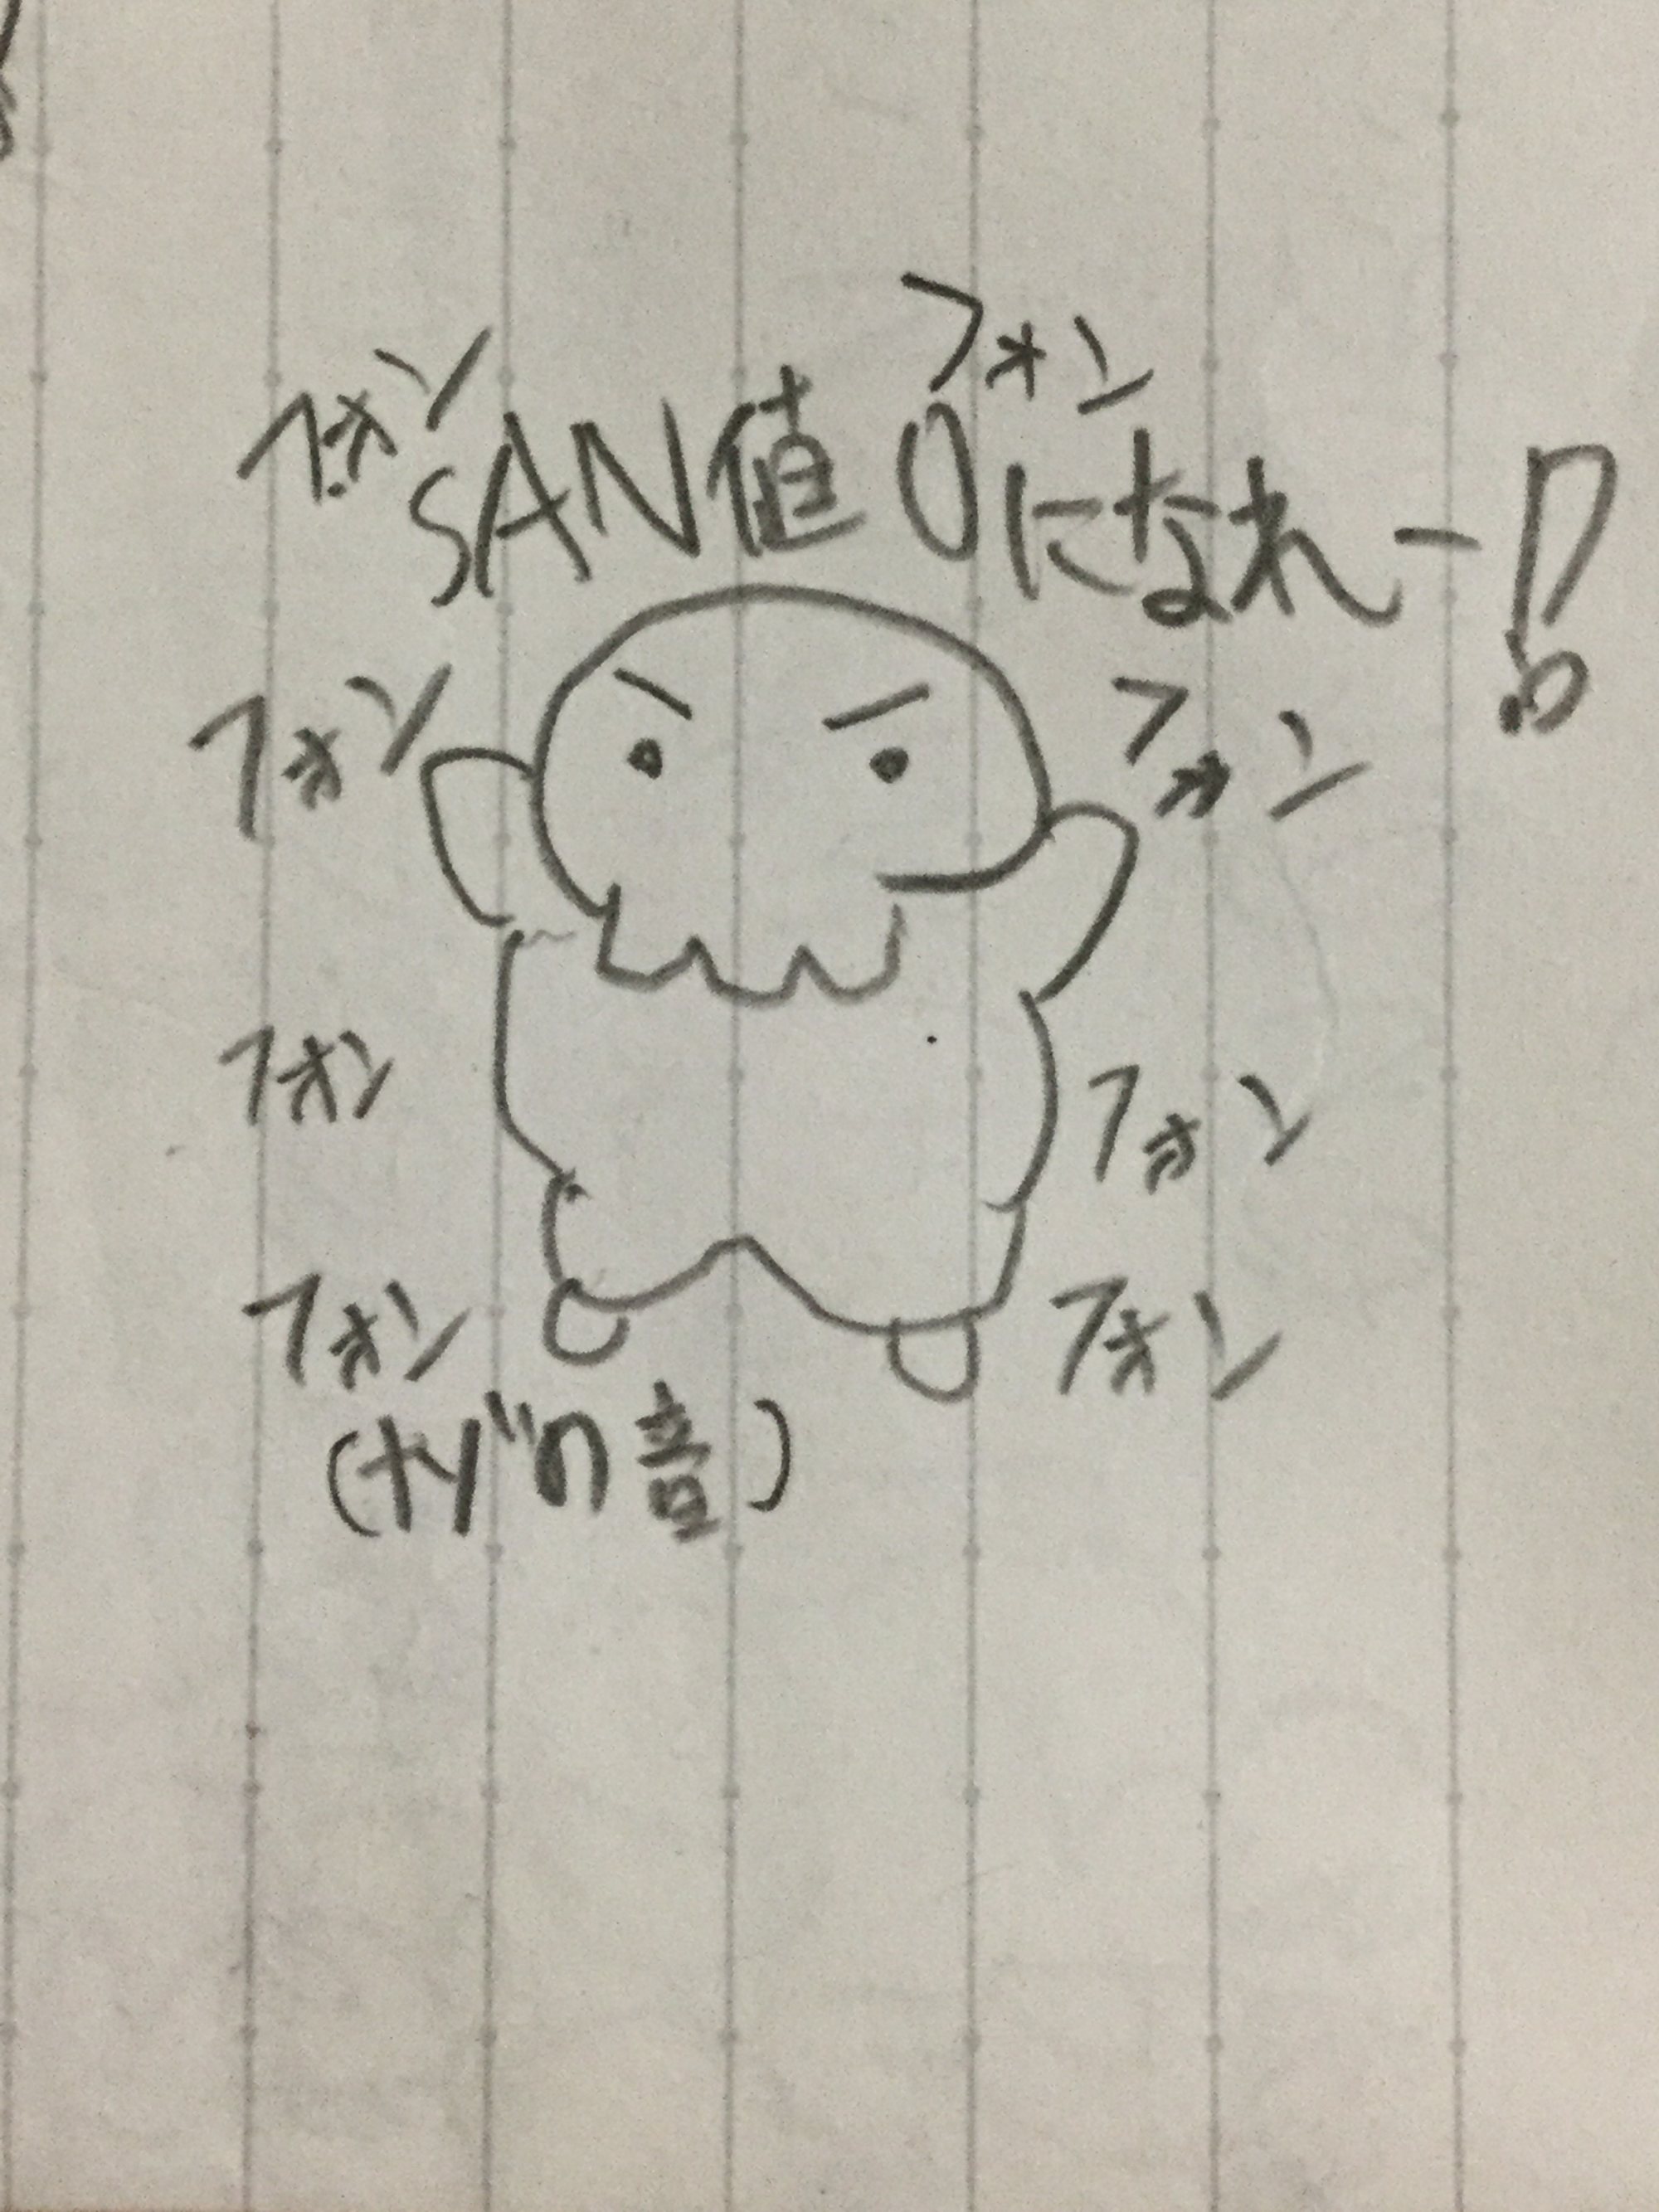 フォン
フォン
SAN値0になれー!
フォン
フォン
フォン
フォン
フォン
フォン
(ナゾの音)